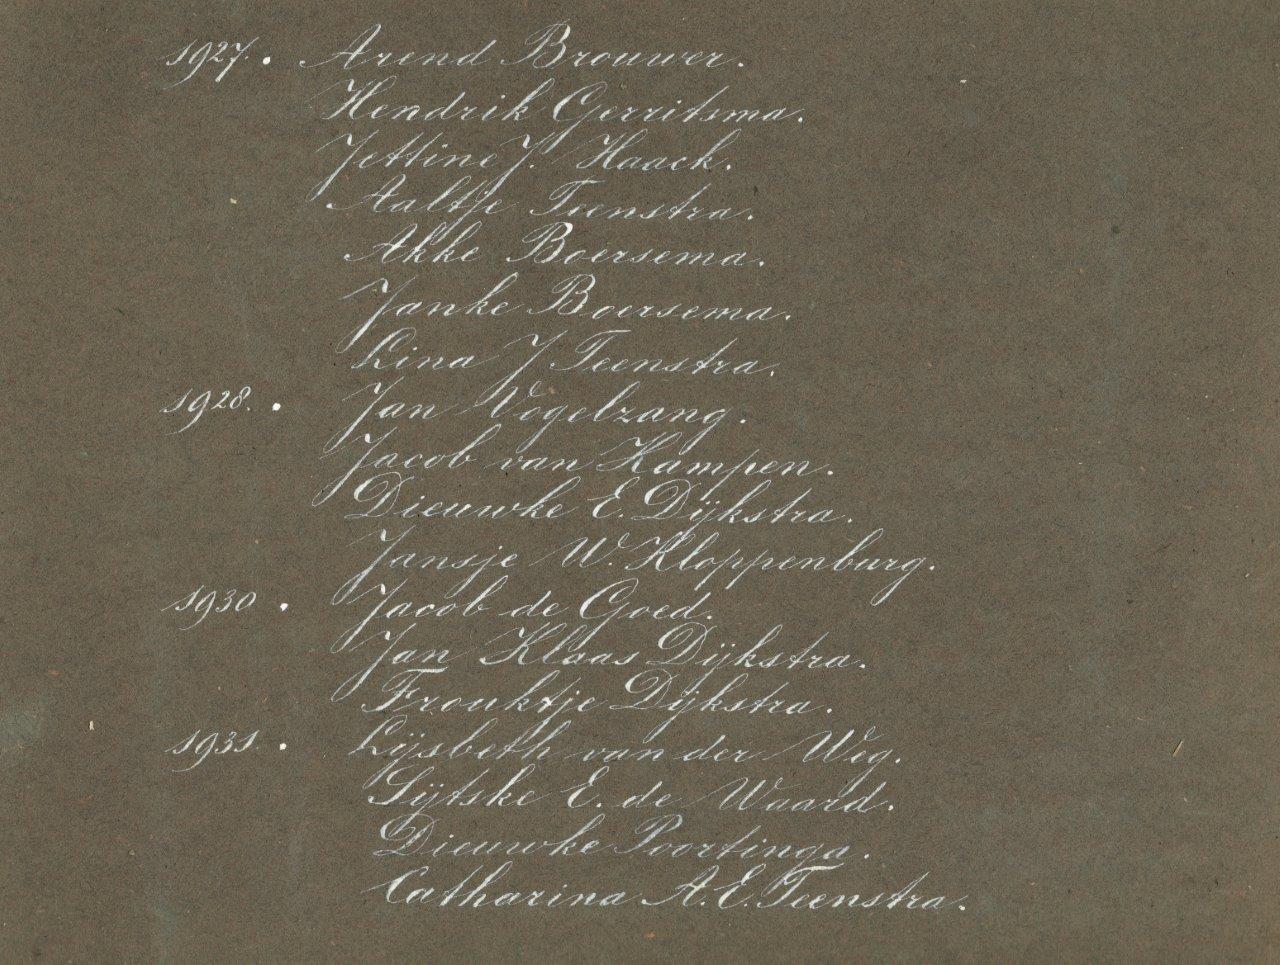 1927. Arend Brouwer.
Hendrik Gerritsma.
Jettine J. Haack.
Aaltje Teenstra.
Akke Boersema.
Janke Boersema.
Lina J Teenstra.
1928. Jan Vogelzang.
Jacob van Kampen.
Dieuwke E. Dijkstra.
Jansje W. Kloppenburg.
1930. Jacob de Goed.
Jan Klaas Dijkstra.
Froukje Dijkstra.
1931. Lijsbeth van der Weg.
Sijtske E. de Waard.
Dieuwke Poortinga.
Catharina A. E. Teenstra.